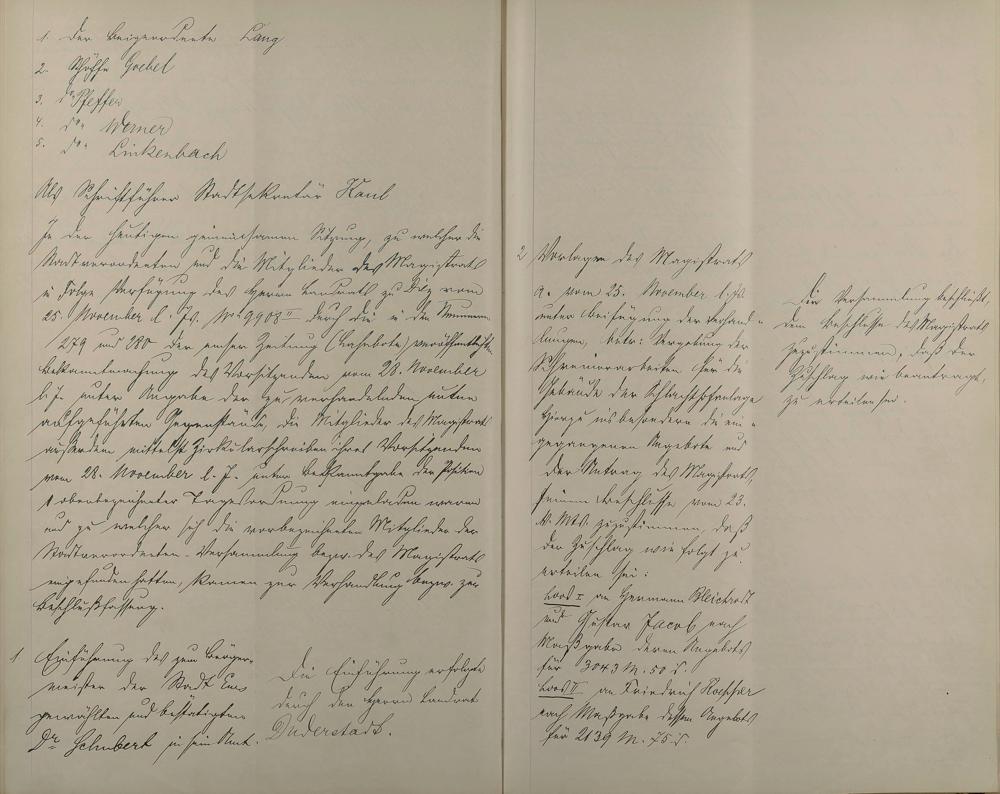 1. Der Beigeordnete Lang
2. Schöffe Goebel
3. do. Pfeffer
4. do. Werner
5. do. Linkenbach
Als Schriftführer Stadtsekretär Kaul
In der heutigen gemeinsamen Sitzung, zu welcher die
Stadtverordneten und die Mitglieder des Magistrats
in Folge Verfügung des Herrn Landrats zu Diez vom
25. November l. Js. No. 9908 II durch die in den Nummern
279 und 280 der Emser Zeitung (Lahnbote) veröffentlichte
Bekanntmachung des Vorsitzenden vom 28. November
l. Js. unter Angabe der zu verhandelnden unten
aufgeführten Gegenstände, die Mitglieder des Magistrats
außerdem mittelst Zirkularschreiben ihres Vorsitzenden
vom 28. November l. J. unter Bekanntgabe der Position
1 obenbezeichneter Tagesordnung eingeladen waren
und zu welcher sich die vorbezeichneten Mitglieder der
Stadtverordneten-Versammlung bezw. des Magistrats
eingefunden hatten, kamen zur Verhandlung bezw. zur
Beschlußfassung.
1 Einführung des zum Bürger-
meister der Stadt Ems
gewählten und bestätigten
Dr. Schubert in sein Amt.
Die Einführung erfolgte
durch den Herrn Landrat
Duderstadt.
2 Vorlagen des Magistrats
a. vom 25. November l. Js.
unter Beifügung der Verhand-
lungen, betr: Vergebung der
Schreinerarbeiten für die
Gebäude der Schlachthofanlage
Hierzu insbesondere die ein-
gegangenen Angebote und
der Antrag des Magistrats,
seinem Beschlusse vom 23.
d. Mts. zuzustimmen, daß
der Zuschlag wie folgt zu
erteilen sei:
Loos I an Hermann Bleichrodt
und Gustav Jacob nach
Maßgabe deren Angebots
für 3043 M. 50 d.
Loos II an Friedrich
nach Maßgabe dessen Angebots
für 2139 M. 75 d.
Die Versammlung beschließt,
dem Beschlusse des Magistrats
zuzustimmen, daß der
Zuschlag wie beantragt,
zu erteilen sei.